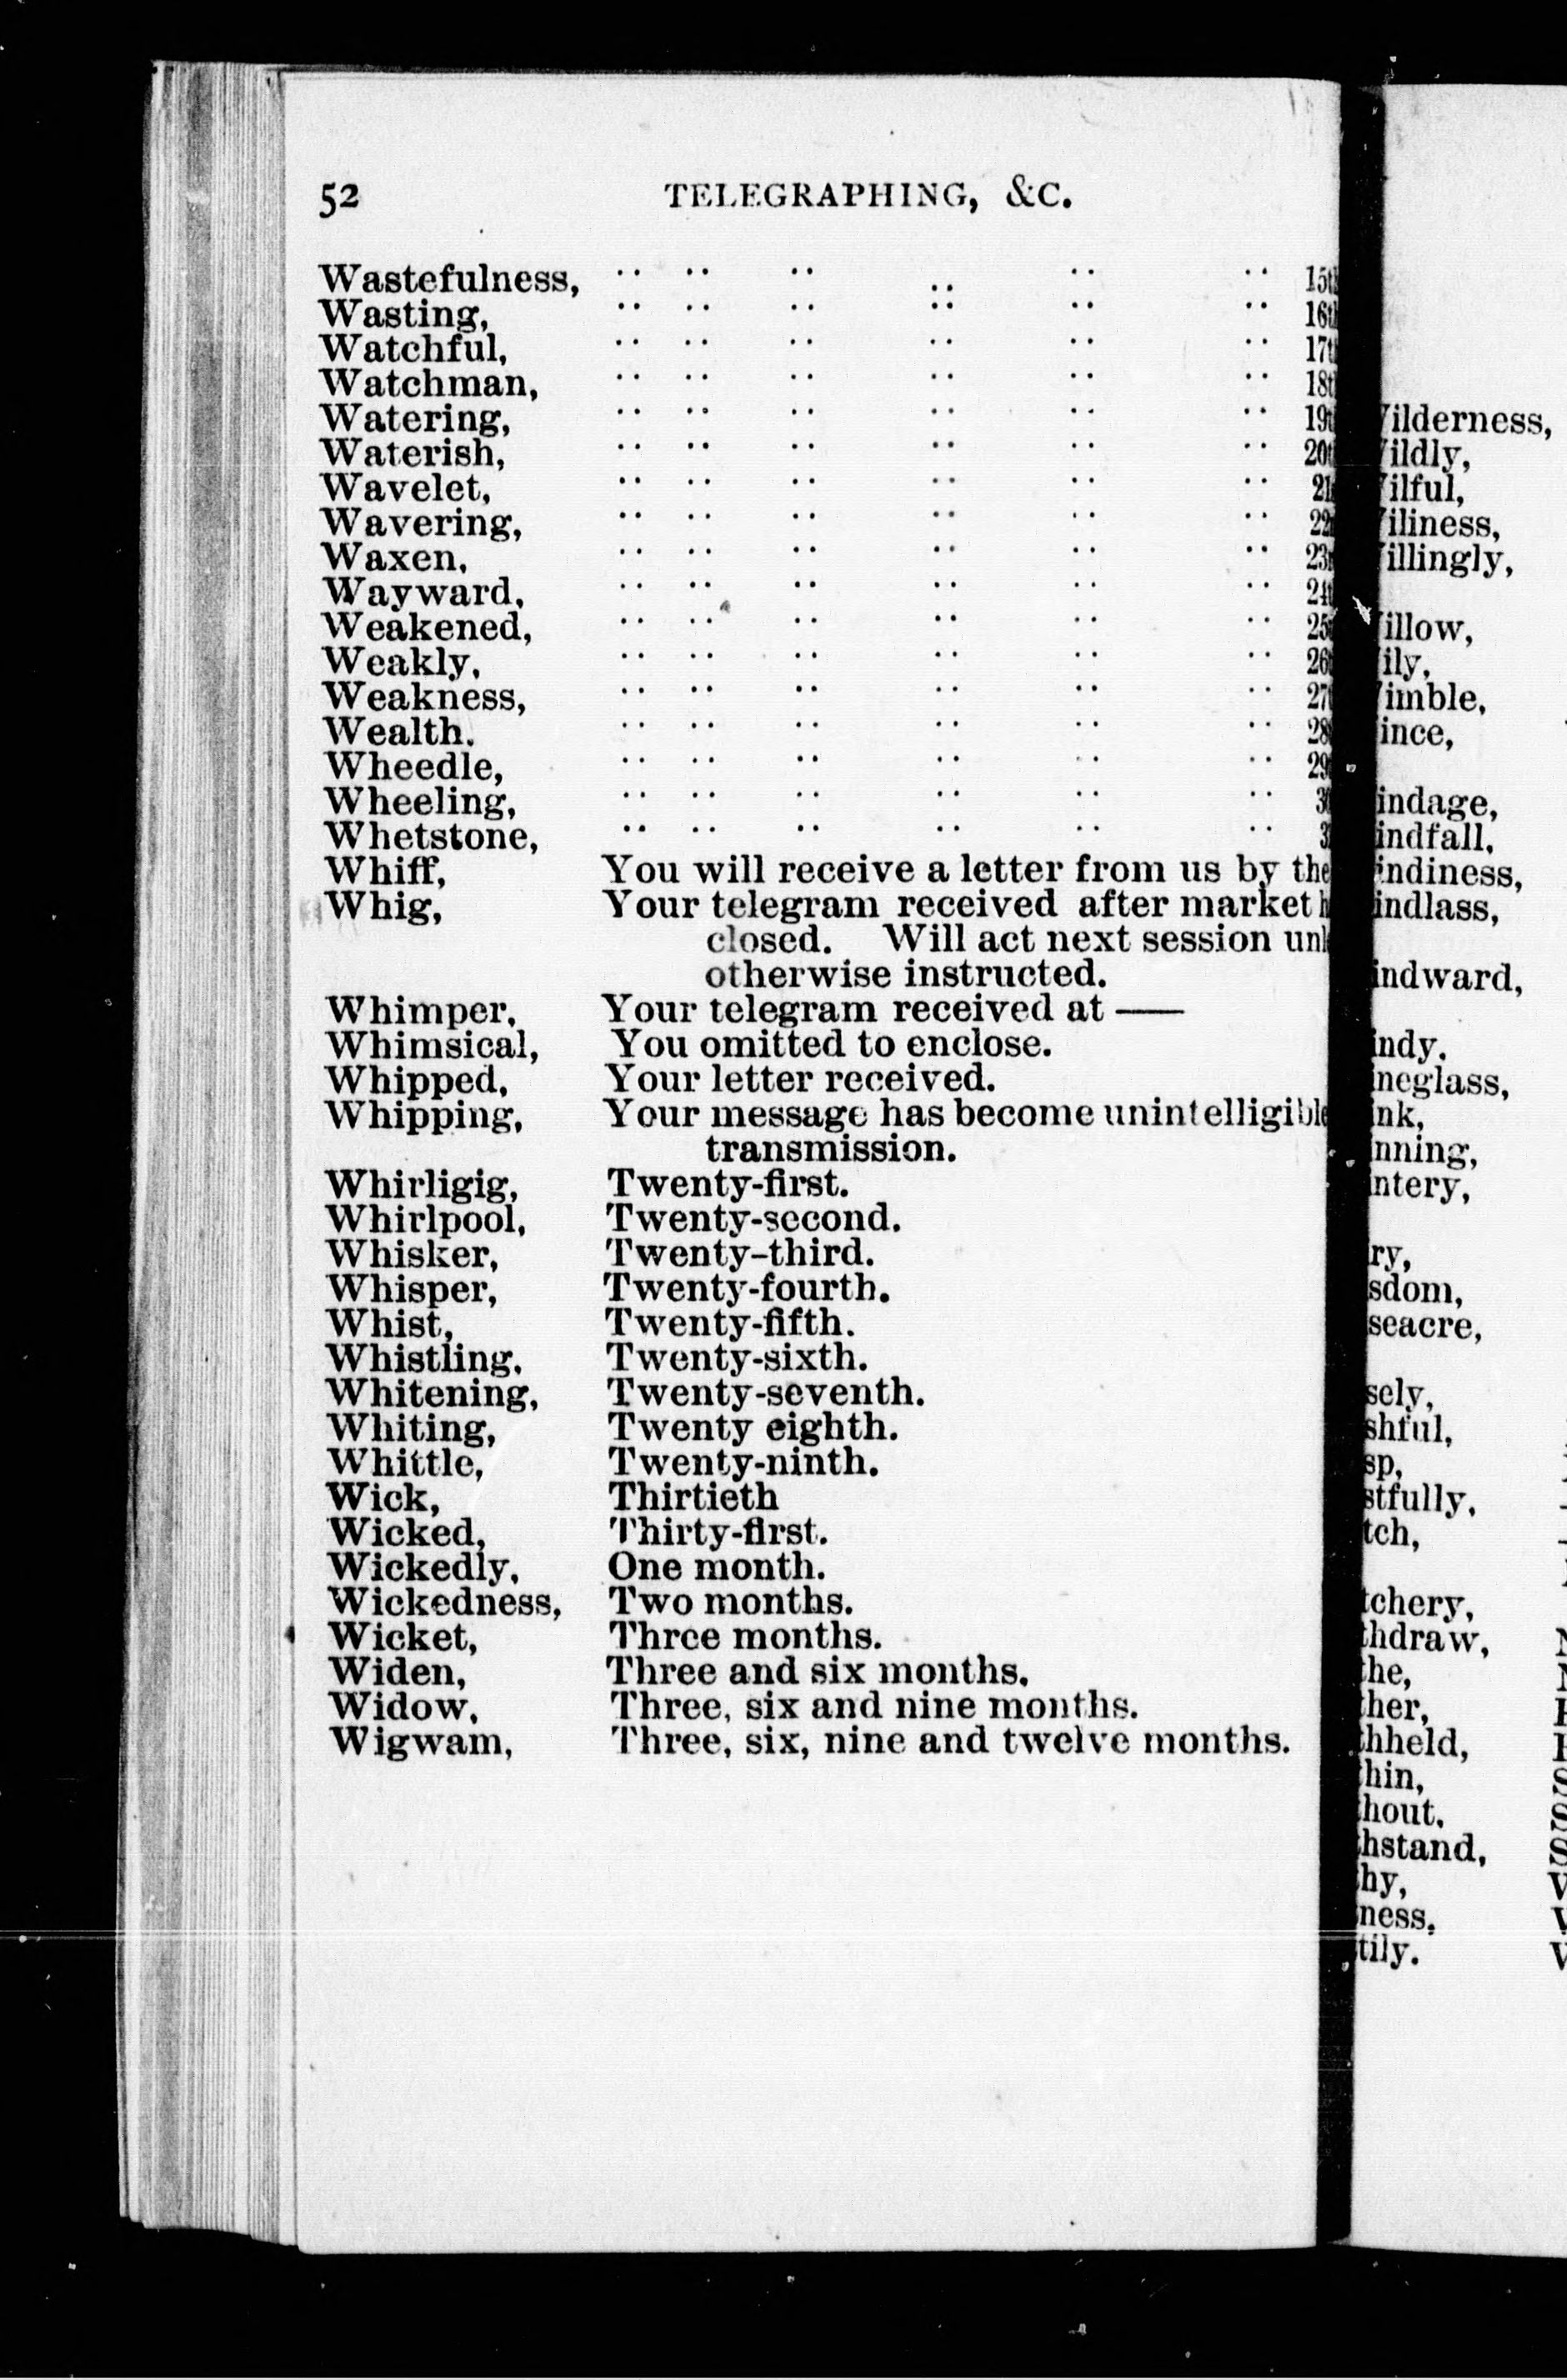 52 TELEGRAPHING, &C.
Wastefulness, .. .. .. .. .. .. 15th
Wasting, .. .. .. .. .. .. 16th
Watchful, .. .. .. .. .. .. 17th
Watchman, .. .. .. .. .. .. 18t
Watering, .. .. .. .. .. .. 19t
Waterish, .. .. .. .. .. .. 20t
Wavelet, .. .. .. .. .. .. 21
Wavering, .. .. .. .. .. .. 22
Waxen, .. .. .. .. .. .. 23
Wayward, .. .. .. .. .. .. 24
Weakened, .. .. .. .. .. .. 25
Weakly, .. .. .. .. .. .. 26
Weakness, .. .. .. .. .. .. 27
Wealth. .. .. .. .. .. .. 28
Wheedle, .. .. .. .. .. .. 29
Wheeling, .. .. .. .. .. .. 3
Whetstone, .. .. .. .. .. .. 3
Whiff, You will receive a letter from us by the
Whig, Your telegram received after market
closed. Will act next session
otherwise instructed.
Whimper, Your telegram received at ——
Whimsical, You omitted to enclose.
Whipped, Your letter received.
Whipping, Your message has become unintelligible
transmission.
Whirligig, Twenty-first.
Whirlpool, Twenty-second.
Whisker, Twenty-third.
Whisper, Twenty-fourth.
Whist, Twenty-fifth.
Whistling, Twenty-sixth.
Whitening, Twenty-seventh.
Whiting, Twenty eighth.
Whittle, Twenty-ninth.
Wick, Thirtieth
Wicked, Thirty-first.
Wickedly, One month.
Wickedness, Two months.
Wicket, Three months.
Widen, Three and six months.
Widow, Three, six and nine months.
Wigwam, Three, six, nine and twelve months.
ilderness,
ildly,
ilful,
iliness,
illingly,
illow,
ily,
imble,
ince,
indage,
indfall,
indiness,
indlass,
indward,
indy.
neglass,
nk,
nning,
ntery,
ry,
sdom,
seacre,
sely,
shful,
sp,
stfully,
tch,
tchery,
hdraw,
he,
her,
hheld,
hin,
hout,
hstand,
hy,
ness,
tily.